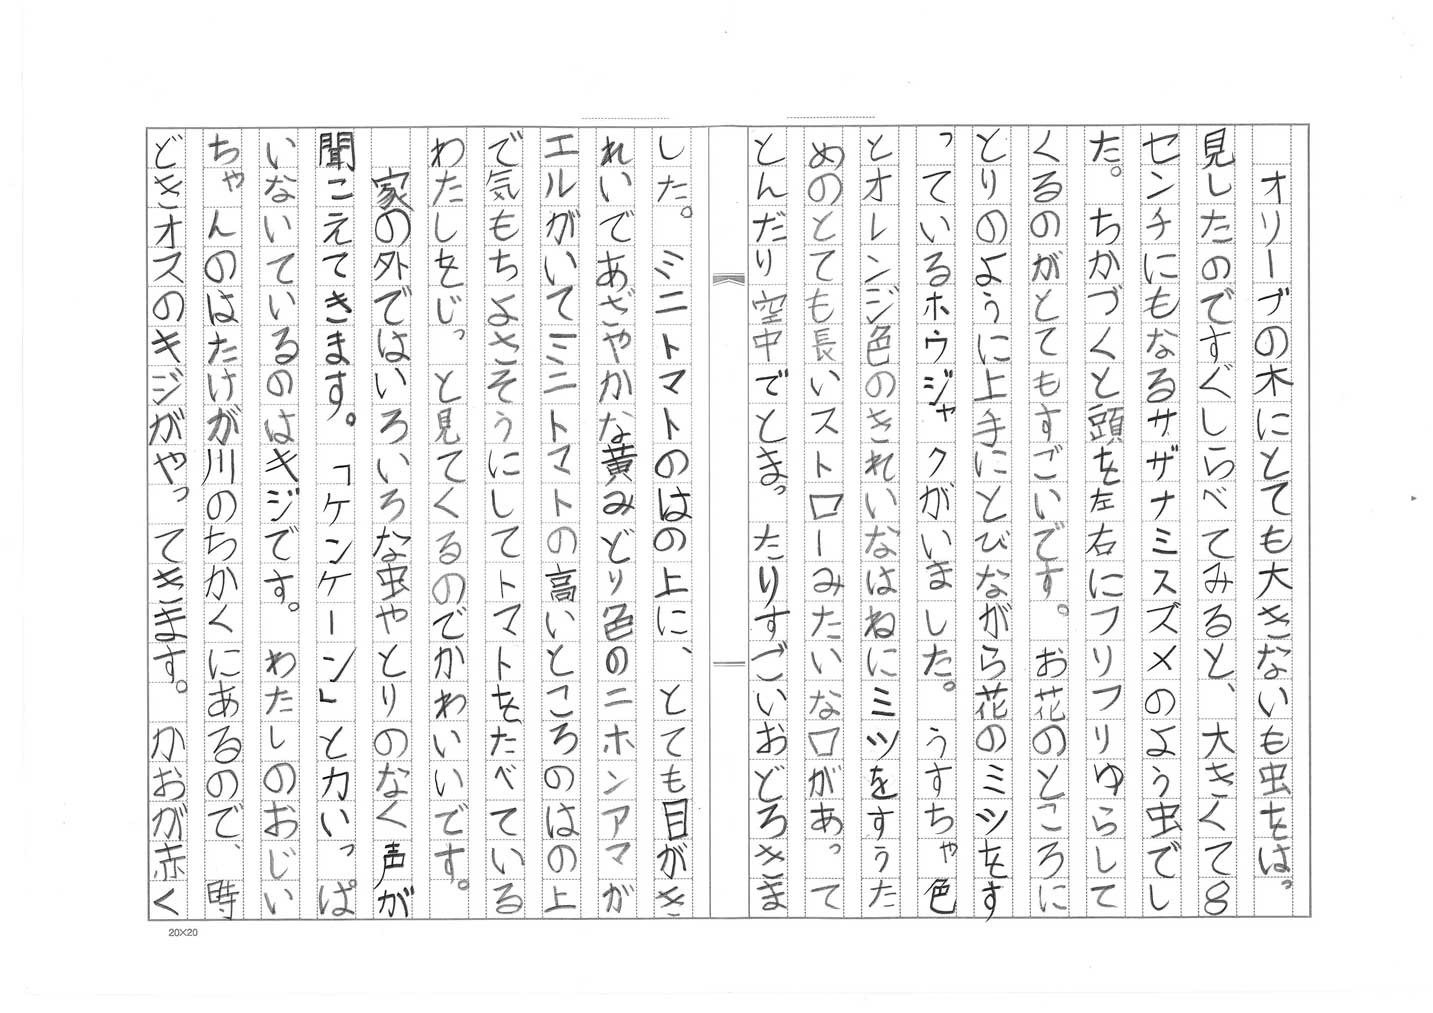 オリーブの木にとても大きないも虫をはっ
見したのですぐしらべてみると、大きくて8
センチにもなるサザナミスズメのよう虫でし
た。ちかづくと頭を左右にフリフリゆらして
くるのがとてもすごいです。お花のところに
とりのように上手にとびながら花のミツをす
っているホウジャクがいました。うすちゃ色
とオレンジ色のきれいなはねにミツをすうた
めのとても長いストローみたいな口があって
とんだり空中でとまったりすごいおどろきま
した。ミニトマトのはの上に、とても目がき
れいであざやかな黄みどり色のニホンアマガ
エルがいてミニトマトの高いところのはの上
で気もちよさそうにしてトマトをたべている
わたしをじっと見てくるのでかわいいです。
家の外ではいろいろな虫やとりのなく声が
聞こえてきます。「ケンケーン」と力いっぱ
いないているのはキジです。わたしのおじい
ちゃんのはたけが川のちかくにあるので、時
どきオスのキジがやってきます。かおが赤く
20×20